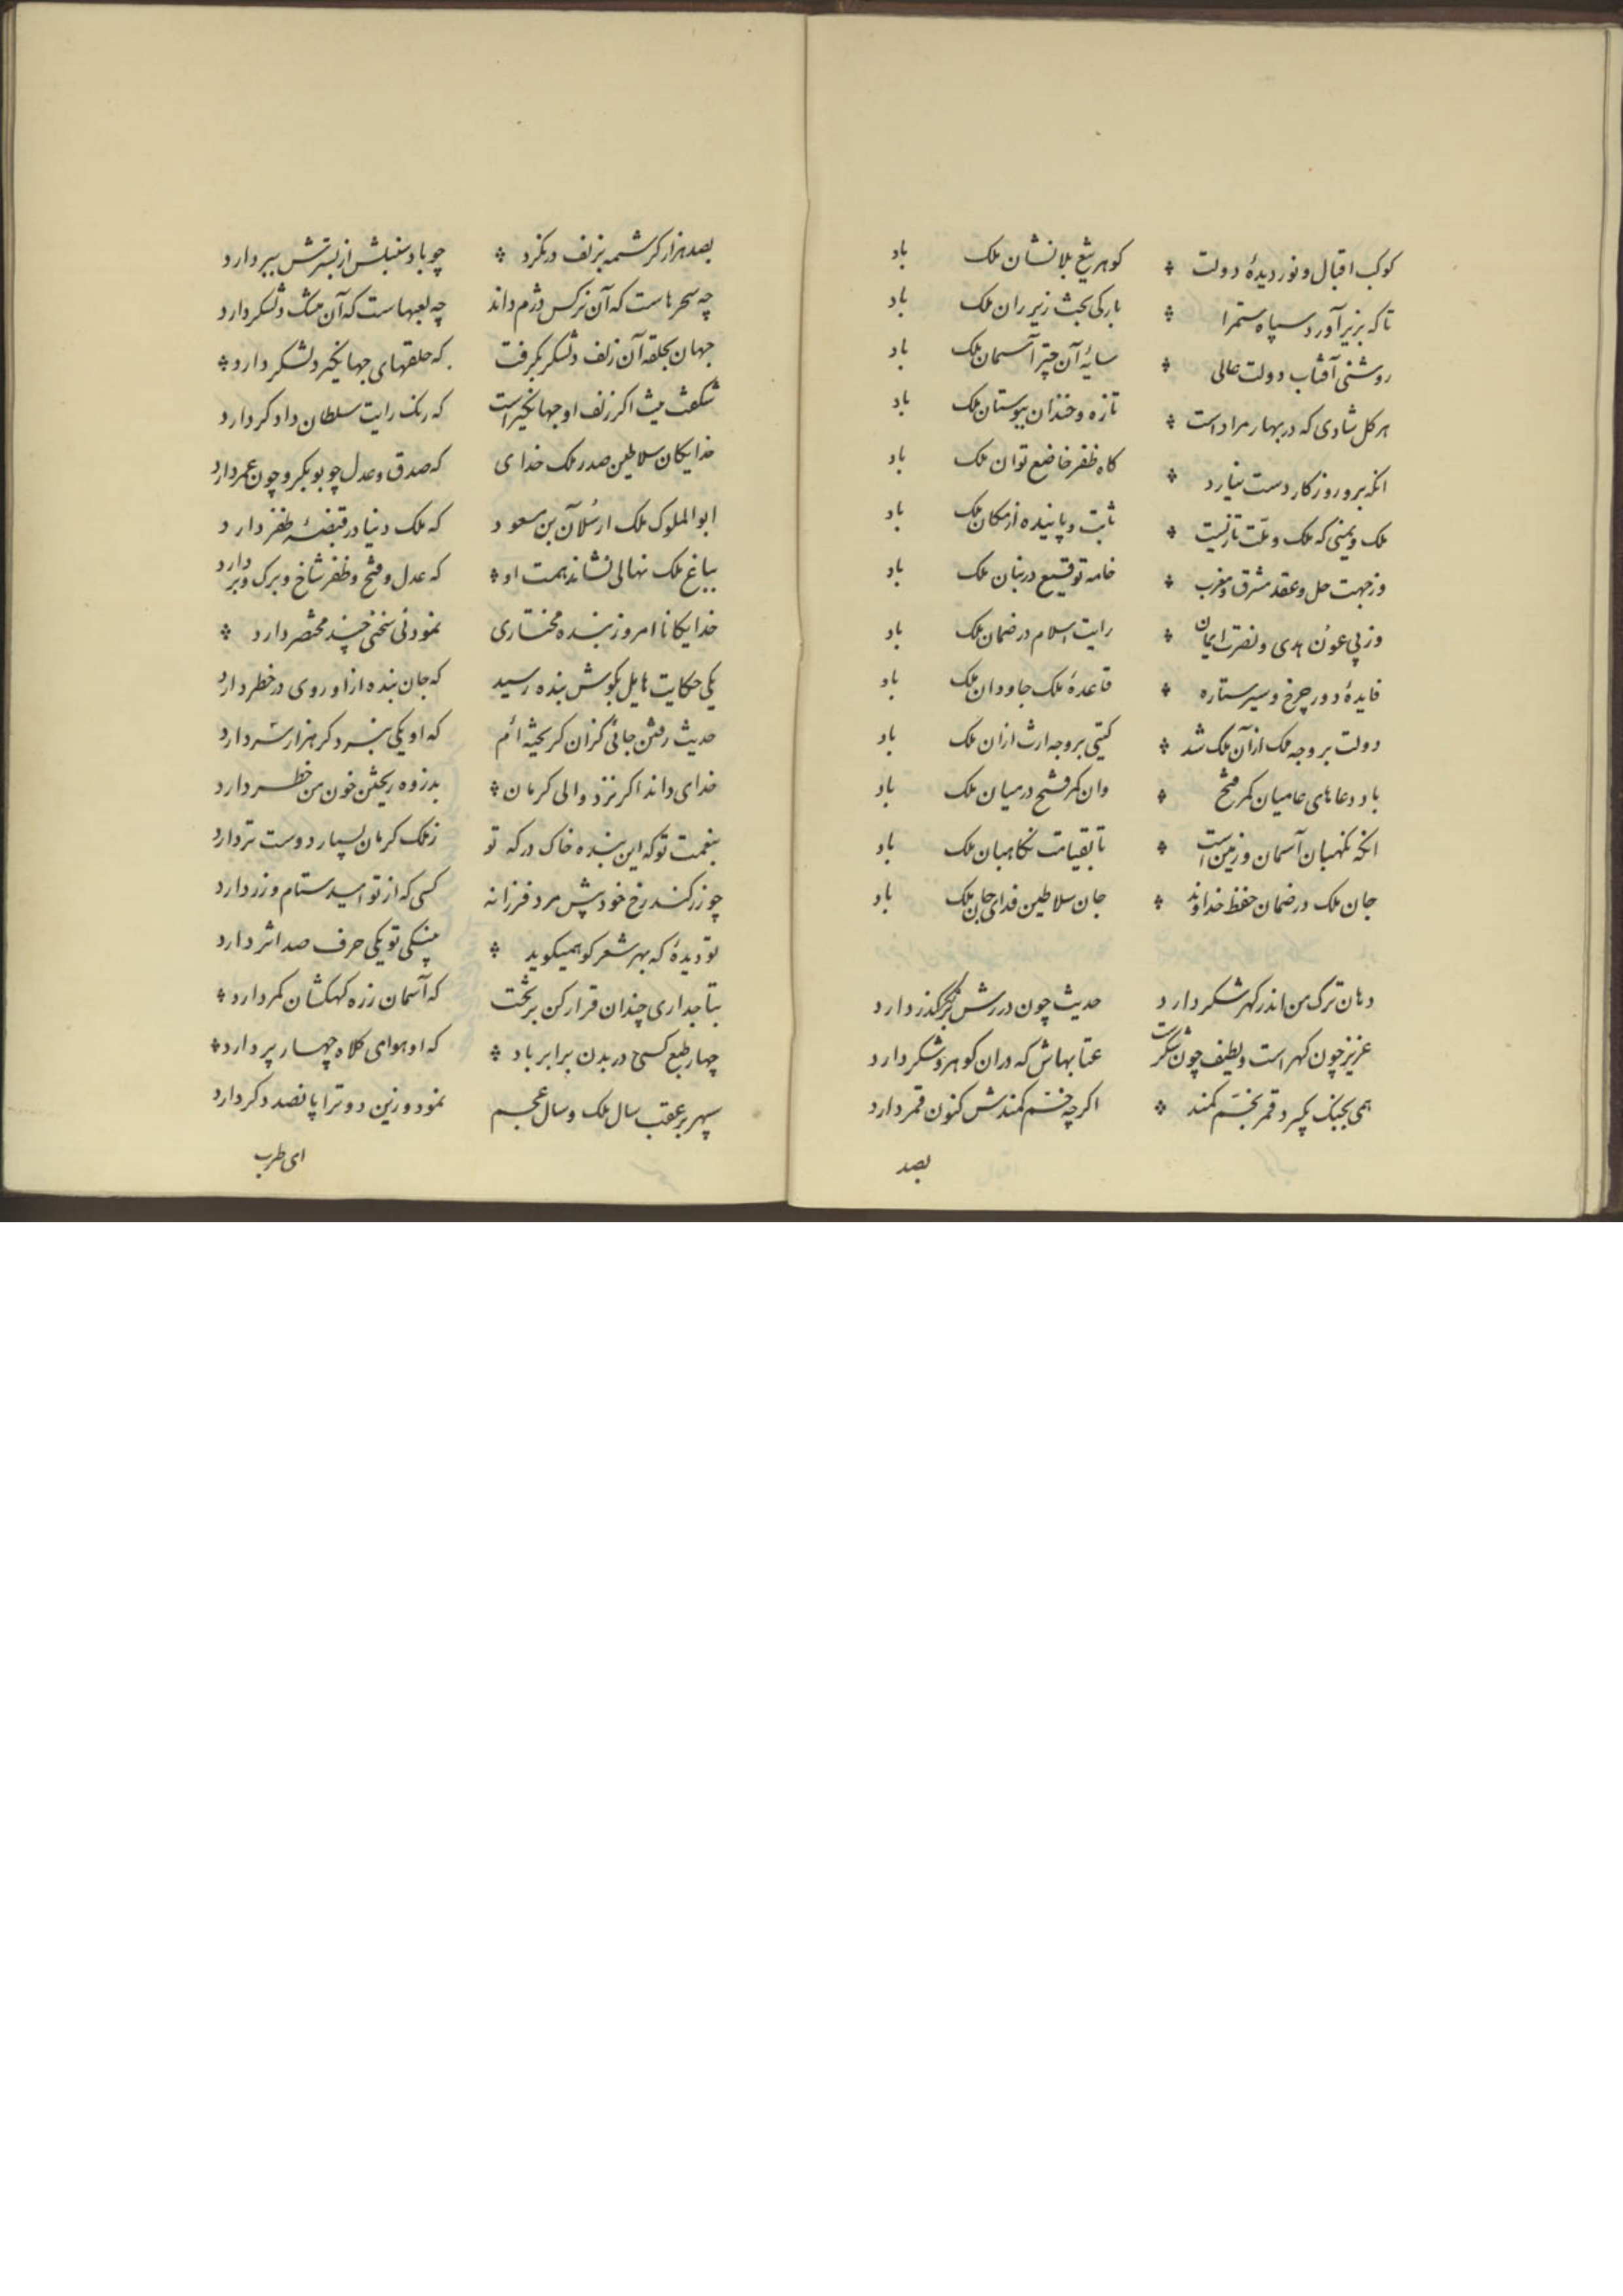 کوکب اقبال و نور دیدهٔ دولت گوهر تیغ بلانشان ملک باد
تا که بزیر آورد سپاه ستم را بارکی بخت زیر ران ملک باد
روشنی آفتاب دولت عالی سایهٔ آن چتر آسمان ملک باد
هر کل شادی که در بهار مراد است تازه و خندان ببوستان ملک باد
انکه برو روزکار دست نیارد کاه ظفر خاضع توان ملک باد
ملک و یمینی که ملک و ملت ثابت و پاینده از مکان ملک باد
وز جهت حل و عقد مشرق و مغرب خامه توقیع در بنان ملک باد
وز پی عون هدی و نصرت ایمان رایت اسلام در ضمان ملک باد
فایدهٔ دور چرخ و سیر ستاره قاعدهٔ ملک جاودان ملک باد
دولت بر وجه ملک از آن ملک شد کیتی بر وجه ارث ازان ملک باد
باد دعاهای عامیان کمر فتح وان کمر فتح در میان ملک باد
انکه نکهبان آسمان و زمین است تا بقیامت نکاهبان ملک باد
جان ملک در ضمان حفظ خداوند جان سلاطین فدای جان ملک باد
دهان ترک من اندر کهر شکر دارد حدیث چون دررش بر شکر کذر دارد
عزیز چون کهر است و لطیف چون شکرست عتابهاش که در ان کوهر و شکر دارد
همی بجنک بکیرد قمر بخم کمند اکرچه خم کمندش کنون قمر دارد
بصد
بصد هزار کرشمه بزلف درنکرد چو باد سنبلش از نسترنش ببر دارد
چه سحرهاست که آن نرکس دژم داند چه لعبهاست که آن مشک دلشکر دارد
جهان بحلقه آن زلف دلشکر بکرفت که حلقهای جهانکیر دلشکر دارد
شکفت نیست اکر زلف او جهانکیراست که رنک رایت سلطان دادکر دارد
خدایکان سلاطین صدر ملک خدای که صدق و عدل چو بوبکر و چون عمر دارد
ابوالملوک ملک ارسلان بن مسعود که ملک دنیا در قبضهٔ ظفر دارد
بباغ ملک نهالی نشاند همت او که عدل و فتح و ظفر شاخ و برک و بر دارد
خدایکانا امروز بنده مختاری نمودنی سخنی چند مختصر دارد
یکی حکایت هایل بکوش بنده رسید که جان بنده از او روی در خطر دارد
حدیث رفتن جائی کزان کریخته ام که او یکی نبرد کر هزار سر دارد
خدای داند اکر نزد والی کرمان بدزوه ریختن خون من خطر دارد
بنعمت تو که این بنده خاک درکه تو ز ملک کرمان بسیار دوست تر دارد
چو زر کند رخ خود پیش مرد فرزانه کسی که از تو امید ستام و زر دارد
تو دیدهٔ که بهر شعر کو همیکوید یکی حرف صد اثر دارد
بتاجداری چندان قرار کن بر تخت که آسمان زره کهکشان کمر دارد
چهار طبع کسی در بدن برابر باد که او هوای کلاه چهار پر دارد
سپهر بر عقب سال ملک و سال عجم نمود و زین دو ترا پانصد دکر دارد
ای طرب